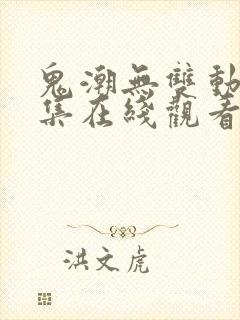 鬼潮無雙動
集在綫觀看
洪文虎